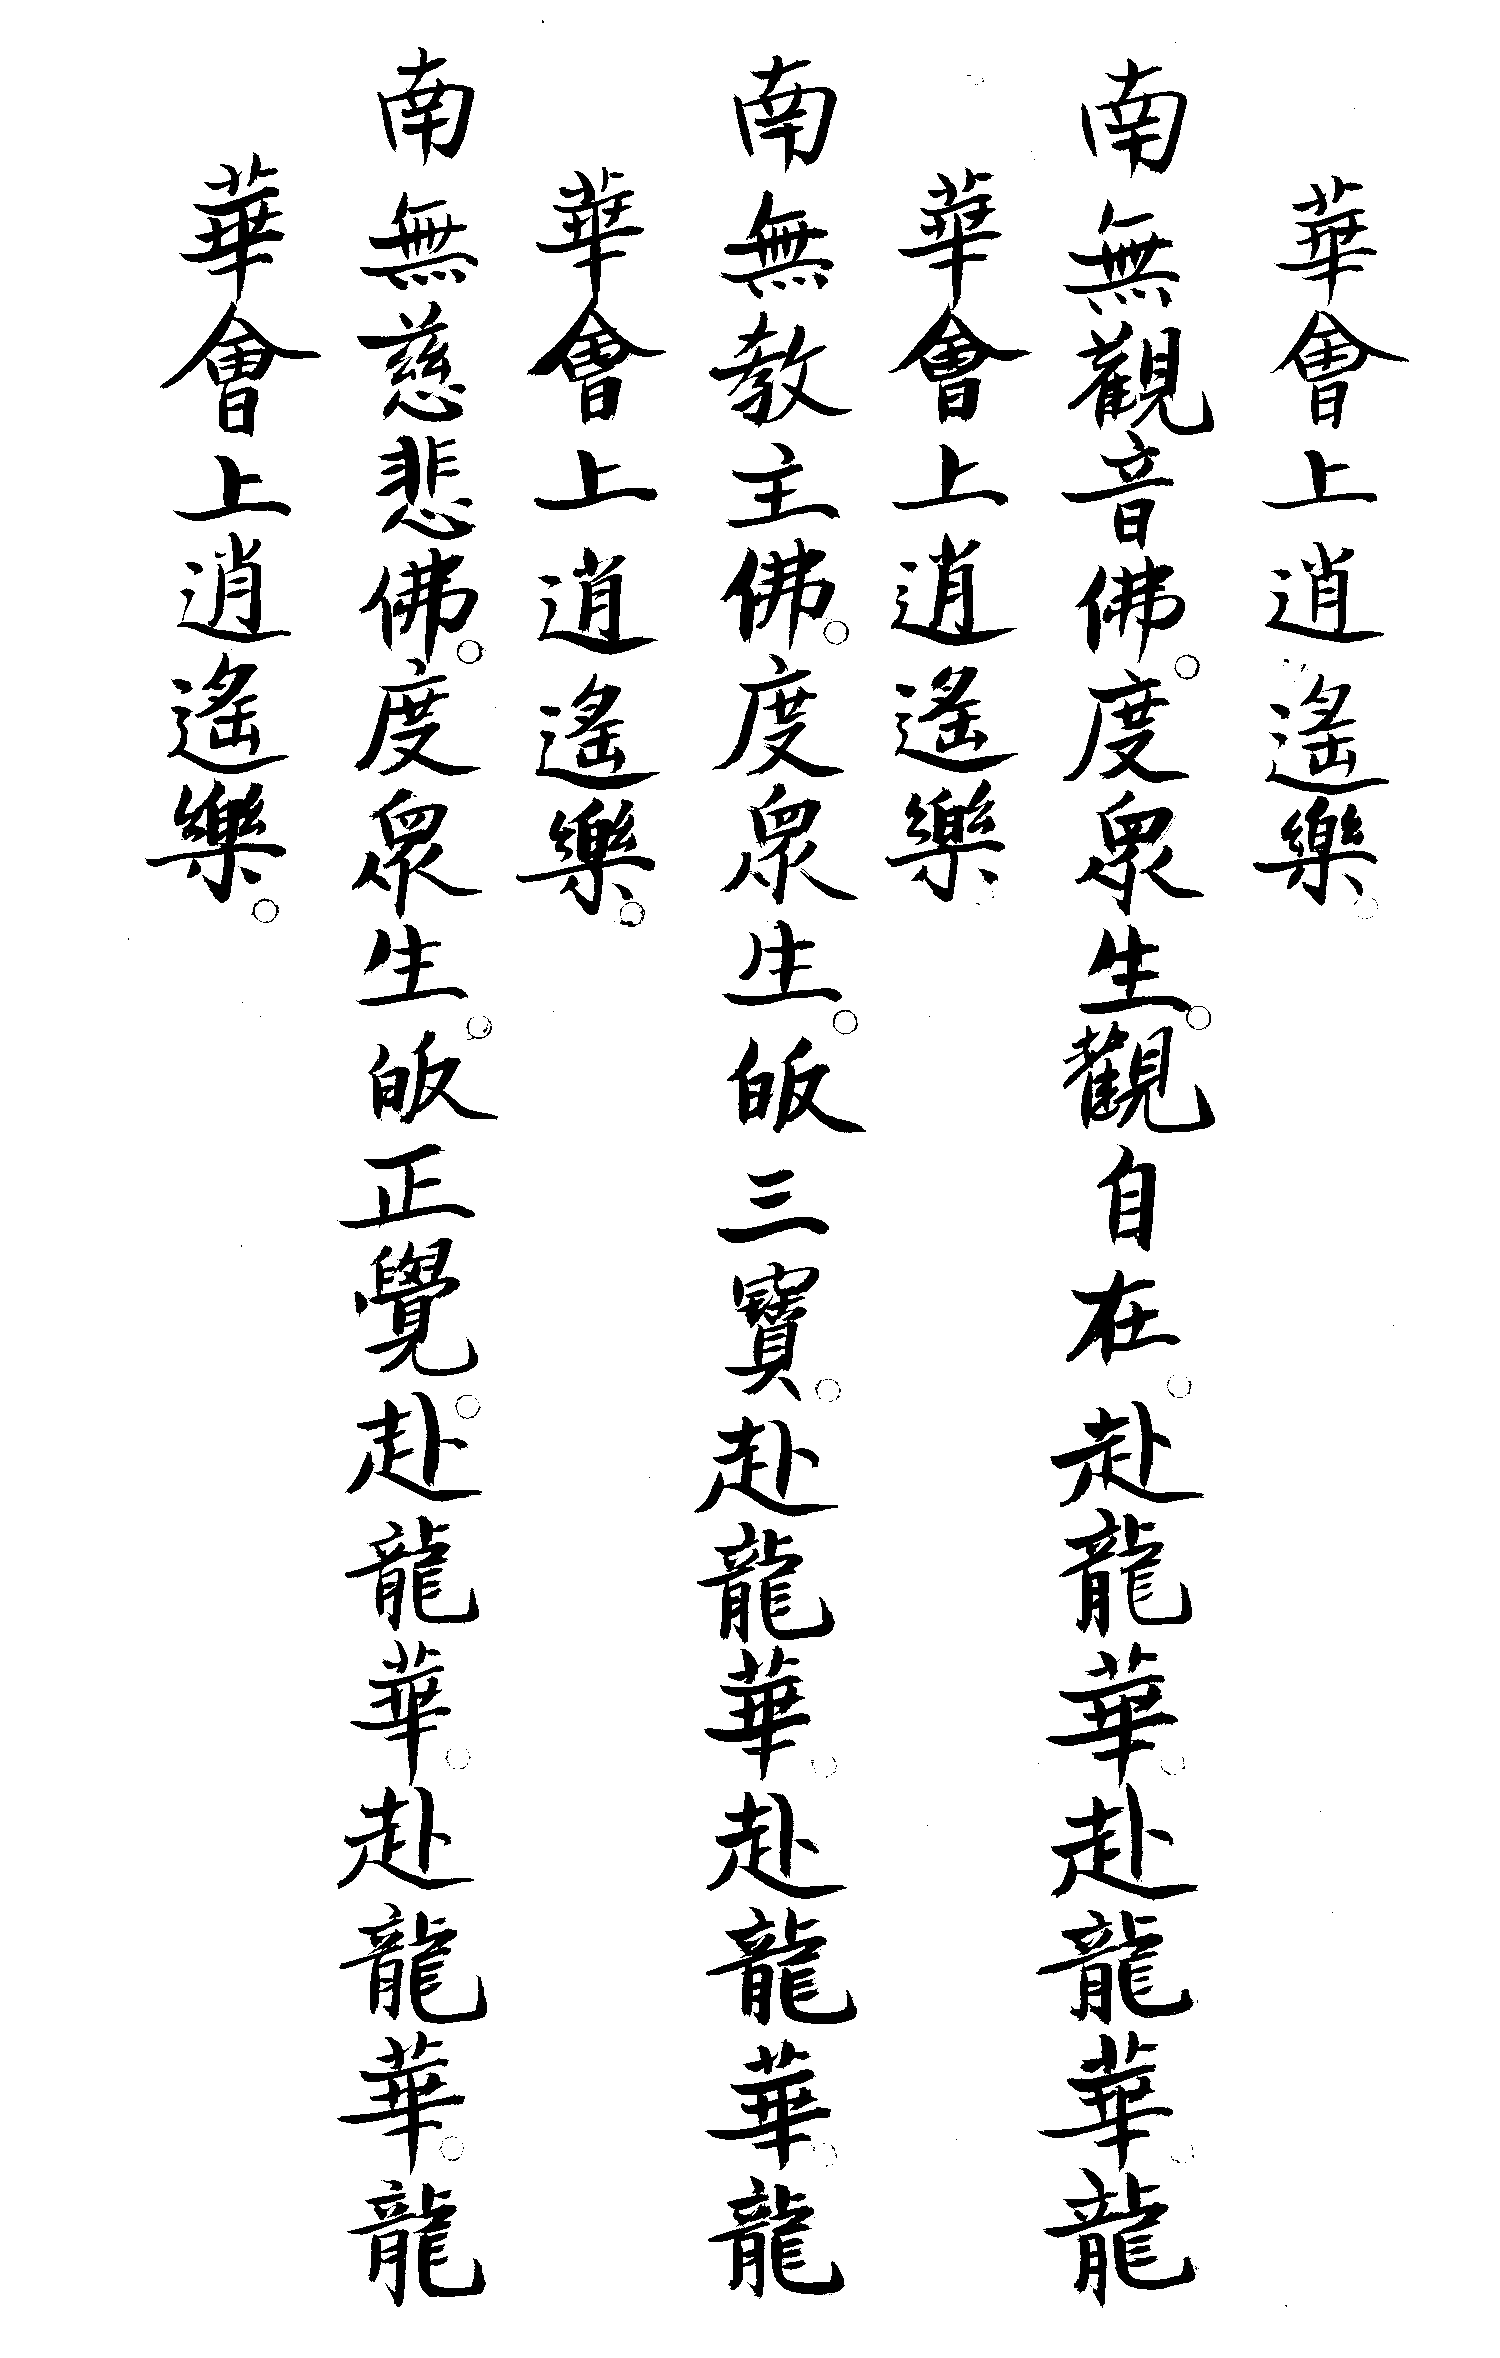 華會上逍遙樂。
南無觀音佛。度眾生。觀自在。赴龍華。赴龍華。龍
華會上逍遙樂。
南無教主佛。度眾生。皈三寶。赴龍華。赴龍華。龍
華會上逍遙樂。
南無慈悲佛。度眾生。皈正覺。赴龍華。赴龍華。龍
華會上逍遙樂。